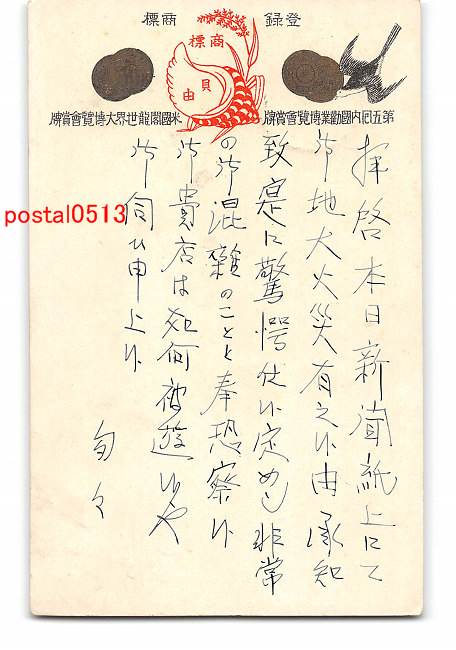 登録　商標
商標
貝由
第五囘内國勸業博覽會賞牌
米國閣龍世界大博覽會賞牌
拝啓本日新聞紙上にて
御地大火災有之候由承知
致寔に驚愕仕候定めし非常
の御混雑のことと奉恐察候
御貴店は如何被遊候や
御伺ひ申上候
匆々
postal0513